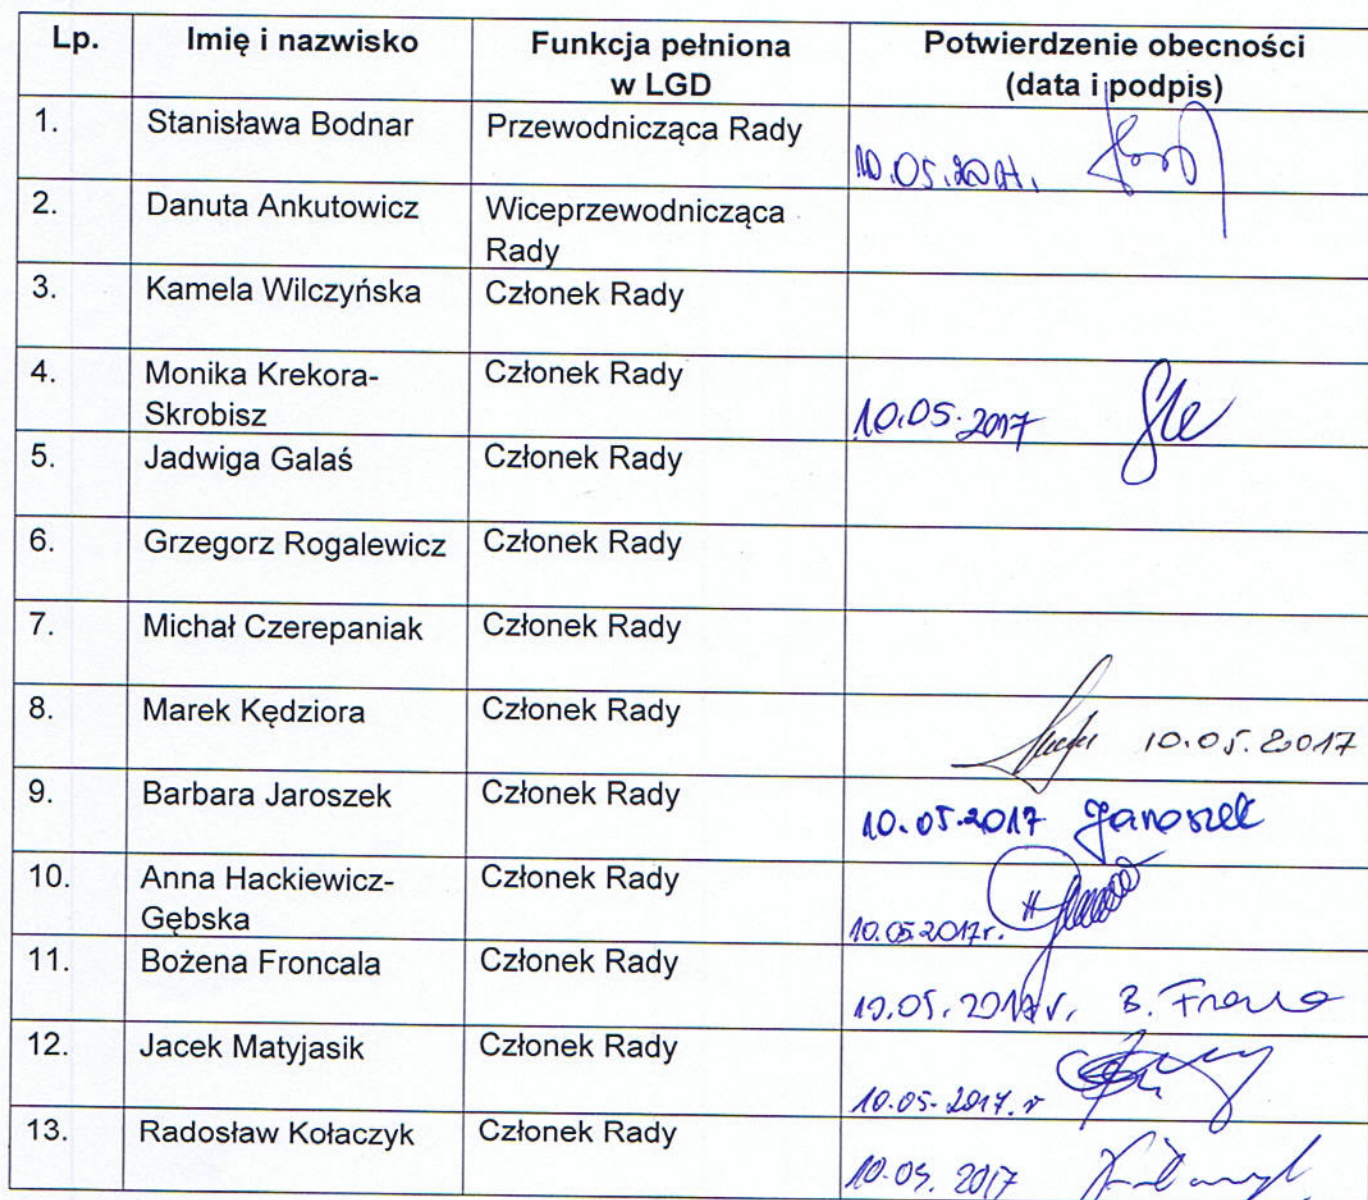 Lp. Imię i nazwisko Funkcja pełniona w LGD Potwierdzenie obecności (data i podpis)
1. Stanisława Bodnar Przewodnicząca Rady 10.05.2017.
2. Danuta Ankutowicz Wiceprzewodnicząca Rady
3. Kamela Wilczyńska Członek Rady
4. Monika Krekora-Skrobisz Członek Rady 10.05.2017
5. Jadwiga Galaś Członek Rady
6. Grzegorz Rogalewicz Członek Rady
7. Michał Czerepaniak Członek Rady
8. Marek Kędziora Członek Rady 10.05.2017
9. Barbara Jaroszek Członek Rady 10.05.2017 Jaroszek
10. Anna Hackiewicz-Gębska Członek Rady 10.05.2017r.
11. Bożena Froncala Członek Rady 10.05.2017r. B.
12. Jacek Matyjasik Członek Rady 10.05.2017.r
13. Radosław Kołaczyk Członek Rady 10.05.2017